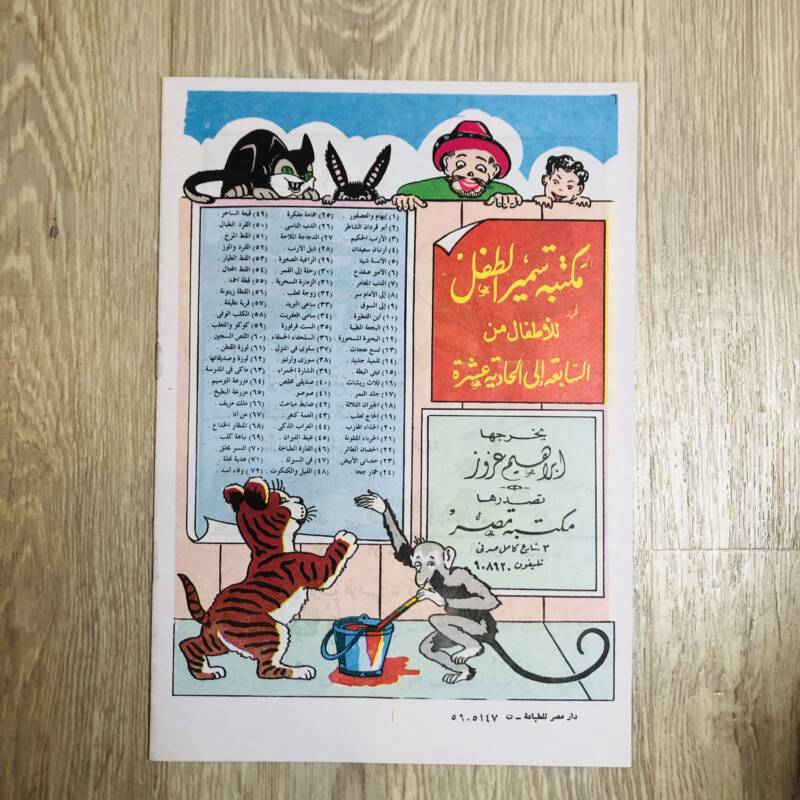 (١) إيهام والعصفور
(٢) أبو قردان الشاطر
(٣) الأرنب الحكيم
(٤) أرنبان سعيدان
(٥) الآنسة شيتا
(٦) الأمير ضفدع
(٧) الدب المغامر
(٨) إلى الأمام سر
(٩) إلى السوق
(١٠) ابن الفطيرة
(١١) البجعة الطيبة
(١٢) البحيرة المسحورة
(١٣) تسع نعجات
(١٤) تلميذ جديد
(١٥) تيتى البطة
(١٦) ثلاث ريشات
(١٧) جلد النمر
(١٨) الجيران الثلاثة
(١٩) الحاج ثعلب
(٢٠) الحذاء الهارب
(٢١) الحرباء المتلونة
(٢٢) الحصان الطائر
(٢٣) حصانى الأبيض
(٢٤) حمار جحا
(٢٥) حمامة مفكرة
(٢٦) الدب الناسى
٢٧) الدجاجة الملاحة
(٢٨) ذيل الأرنب
(٢٩) الراعية الصغيرة
(٣٠) رحلة إلى القمر
(٣١) الزمارة السحرية
(٣٢) زوجة ثعلب
(٣٣) ساعى البريد
(٣٤) ساعى العفريت
(٣٥) الست فرفورة
(٣٦) السلحفاء الحمقاء
(٣٧) سلوى فى المنزل
(٣٨) سوزى وأرنبو
(٣٩) الشارة الحمراء
(٤٠) صديقى مخلص
(٤١) صوصو
(٤٢) ضابط مباحث
(٤٣) العمة كنغر
(٤٤) الغراب الذكى
(٤٥) غيط الفيران
(٤٦) الفأرة الطباخة
(٤٧) فى السيرك
(٤٨) الفيل والكتكوت
(٤٩) قبعة الساحر
(٥٠) القرد الطبال
(٥١) القط المرح
(٥٢) القرد والموز
(٥٣) القط الطيار
(٥٤) القط المحتال
(٥٥) قطة أحمد
(٥٦) القطة زيتونة
(٥٧) قرية نظيفة
(٥٨) الكلب الوفى
(٥٩) كوكو والثعلب
(٦٠) اللص السجين
(٦١) لوزة القطن
(٦٢) لوزة وصديقاتها
(٦٣) ماكى فى المدرسة
(٦٤) مزرعة البرسيم
(٦٥) مزرعة البطيخ
(٦٦) ملك مزيف
(٦٧) من أنا
(٦٨) المنظار الخداع
(٦٩) نباهة كلب
(٧٠) النسر يحلق
(٧١) هدية نحلة
(٧٢) وفاء أسد
مكتبة سمير الطفل
للأطفال من
السابعة إلى الحادية عشرة
يخرجها
إبراهيم عزوز
تصدرها
مكتبة مصر
٣ شارع كامل صدقى
تليفون ٩٠٨٩٢٠
دار مصر للطباعة - ت ٥٦٠٥١٤٧